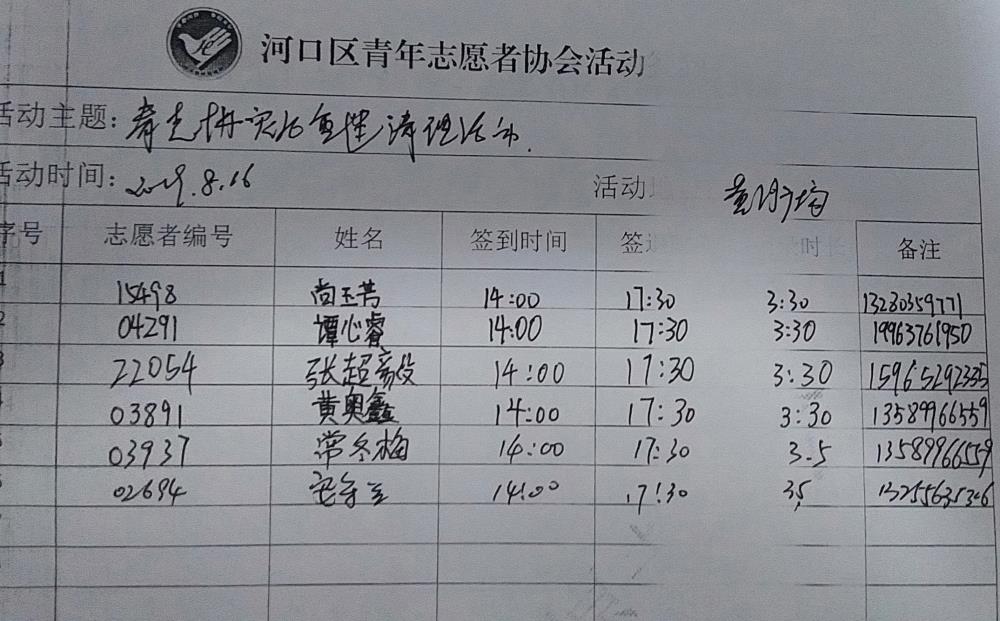 河口区青年志愿者协会活动
活动主题: 清理活动.
活动时间: 2019.8.16 活动
序号 志愿者编号 姓名 签到时间 签退 时长 备注
1 15498 尚玉芳 14:00 17:30 3:30 13280359771
2 04291 谭心睿 14:00 17:30 3:30 19963761950
3 22054 张超毅 14:00 17:30 3:30 15965292335
4 03891 黄奥鑫 14:00 17:30 3:30 13589966559
5 03937 常冬梅 14:00 17:30 3.5 13589966559
6 02694 14:00 17:30 3.5